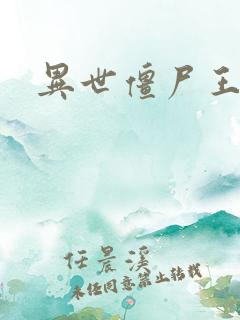 異世僵尸王
任晨溪
未经同意禁止转载